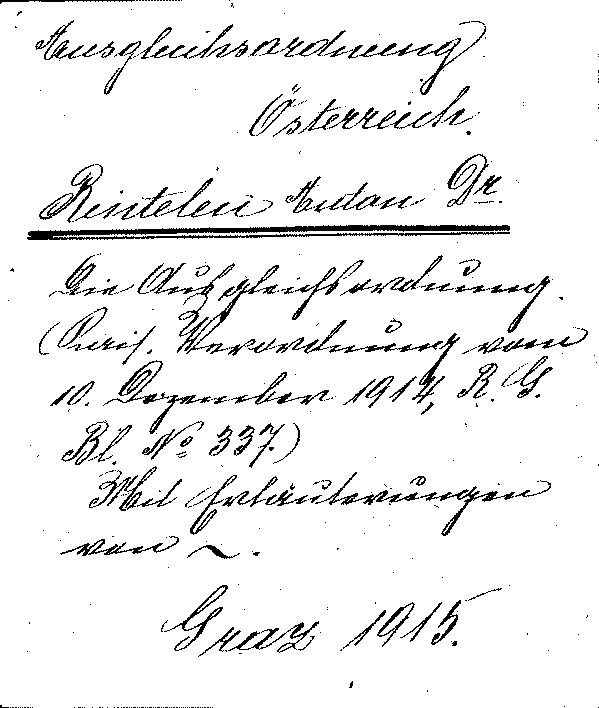 Ausgleichsordnung
Österreich.
Rintelen Anton Dr.
Die Ausgleichsordnung.
(Kais. Verordnung vom
10. Dezember 1914, R. G.
Bl. No 337.)
Mit Erläuterungen
von ~.
Graz 1915.